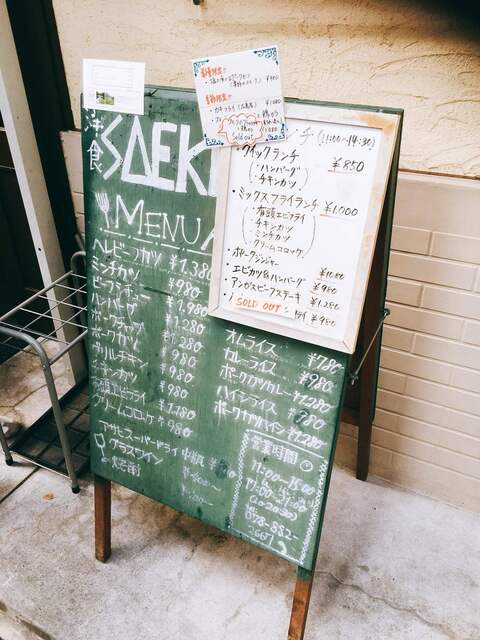 洋食
SAEKI
MENU
ヘレビーフカツ ¥1,380
ミンチカツ ¥980
ビーフシチュー ¥1,980
ハンバーグ ¥1,280
ポークチャップ ¥1,280
ポークカツ ¥980
グリルチキン ¥980
チキンカツ ¥980
有頭エビフライ ¥1,280
クリームコロッケ ¥980
アサヒスーパードライ 中瓶
グラスワイン
焼酎
オムライス ¥780
カレーライス ¥980
ポークカツカレー ¥1,280
ハイシライス
ポークカツハイシ ¥1,280
営業時間
11:00~15:00
17:00~
078-882-
2667
チ (11:00~14:30)
・クイックランチ ¥850
(・ハンバーグ
・チキンカツ)
・ミックスフライランチ ¥1,000
(有頭エビフライ
チキンカツ
ミンチカツ
クリームコロッケ)
・ポークジンジャー
・エビカツ&ハンバーグ ¥980
・アンガスビーフステーキ ¥1,280
SOLD OUT ¥980
・カキフライ
Sold out